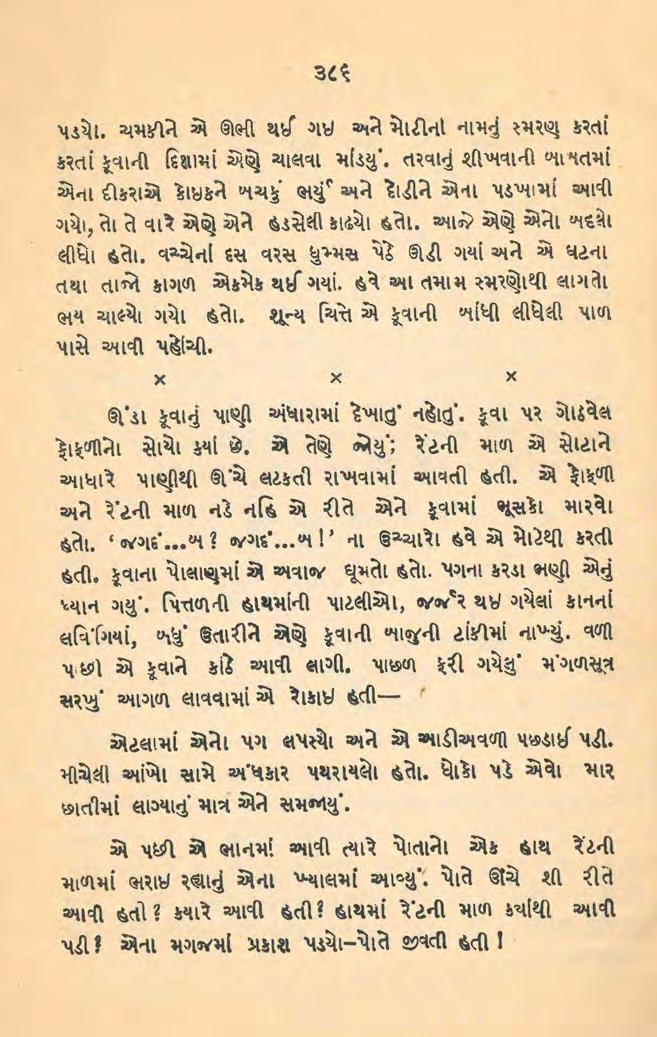 ૩૮૬
પડયો. ચમકીને એ ઊભી થઈ ગઇ અને મોટીના નામનું સ્મરણ કરતાં
કરતાં કૂવાની દિશામાં એણે ચાલવા માંડયું. તરવાનું શીખવાની બાબતમાં
એના દીકરાએ કોઇકને બચકું ભર્યું અને દોડીને એના પડખામાં આવી
ગયો, તો તે વારે એણે એને હડસેલી કાઢયો હતો. આજે એણે એનો બદલો
લીધો હતો. વચ્ચેનાં દસ વરસ ધુમ્મસ પેઠે ઊડી ગયાં અને એ ઘટના
તથા તાજો કાગળ એકમેક થઈ ગયાં. હવે આ તમામ સ્મરણોથી લાગતો
ભય ચાલ્યો ગયો હતો. શૂન્ય ચિત્તે એ કૂવાની બાંધી લીધેલી પાળ
પાસે આવી પહોંચી.
× × ×
ઊંડા કૂવાનું પાણી અંધારામાં દેખાતું નહોતું. કૂવા પર ગોઠવેલ
ફોફળીનો સોયો કયાં છે. એ તેણે જોયું; રેંટની માળ એ સોટાને
આધારે પાણીથી ઊંચે લટકતી રાખવામાં આવતી હતી. એ ફોફળી
અને રેંટની માળ નડે નહિ એ રીતે એને કૂવામાં ભૂસકો મારવો
હતો. ‘જગદં...બ? જગદં...બ!’ ના ઉચ્ચારો હવે એ મોટેથી કરતી
હતી. કૂવાના પોલાણમાં એ અવાજ ઘૂમતો હતો. પગના કરડા ભણી એનું
ધ્યાન ગયું. પિત્તળની હાથમાંની પાટલીઓ, જર્જર થઇ ગયેલાં કાનનાં
લવિંગિયાં, બધું ઉતારીને એણે કૂવાની બાજુની ટાંકીમાં નાખ્યું. વળી
પાછી એ કૂવાને કાંઠે આવી લાગી. પાછળ ફરી ગયેલું મંગળસૂત્ર
સરખું આગળ લાવવામાં એ રોકાઇ હતી—
એટલામાં એનો પગ લપસ્યો અને એ આડીઅવળી પછડાઈ પડી.
મીચેલી આંખો સામે અંધકાર પથરાયલો હતો. ધોકો પડે એવો માર
છાતીમાં લાગ્યાનું માત્ર એને સમજાયું.
એ પછી એ ભાનમાં આવી ત્યારે પોતાનો એક હાથ રેંટની
માળમાં ભરાઇ રહ્યાનું એના ખ્યાલમાં આવ્યું. પોતે ઊંચે શી રીતે
આવી હતી? કયારે આવી હતી? હાથમાં રેંટની માળ કયાંથી આવી
પડી? એના મગજમાં પ્રકાશ પડયો–પોતે જીવતી હતી!